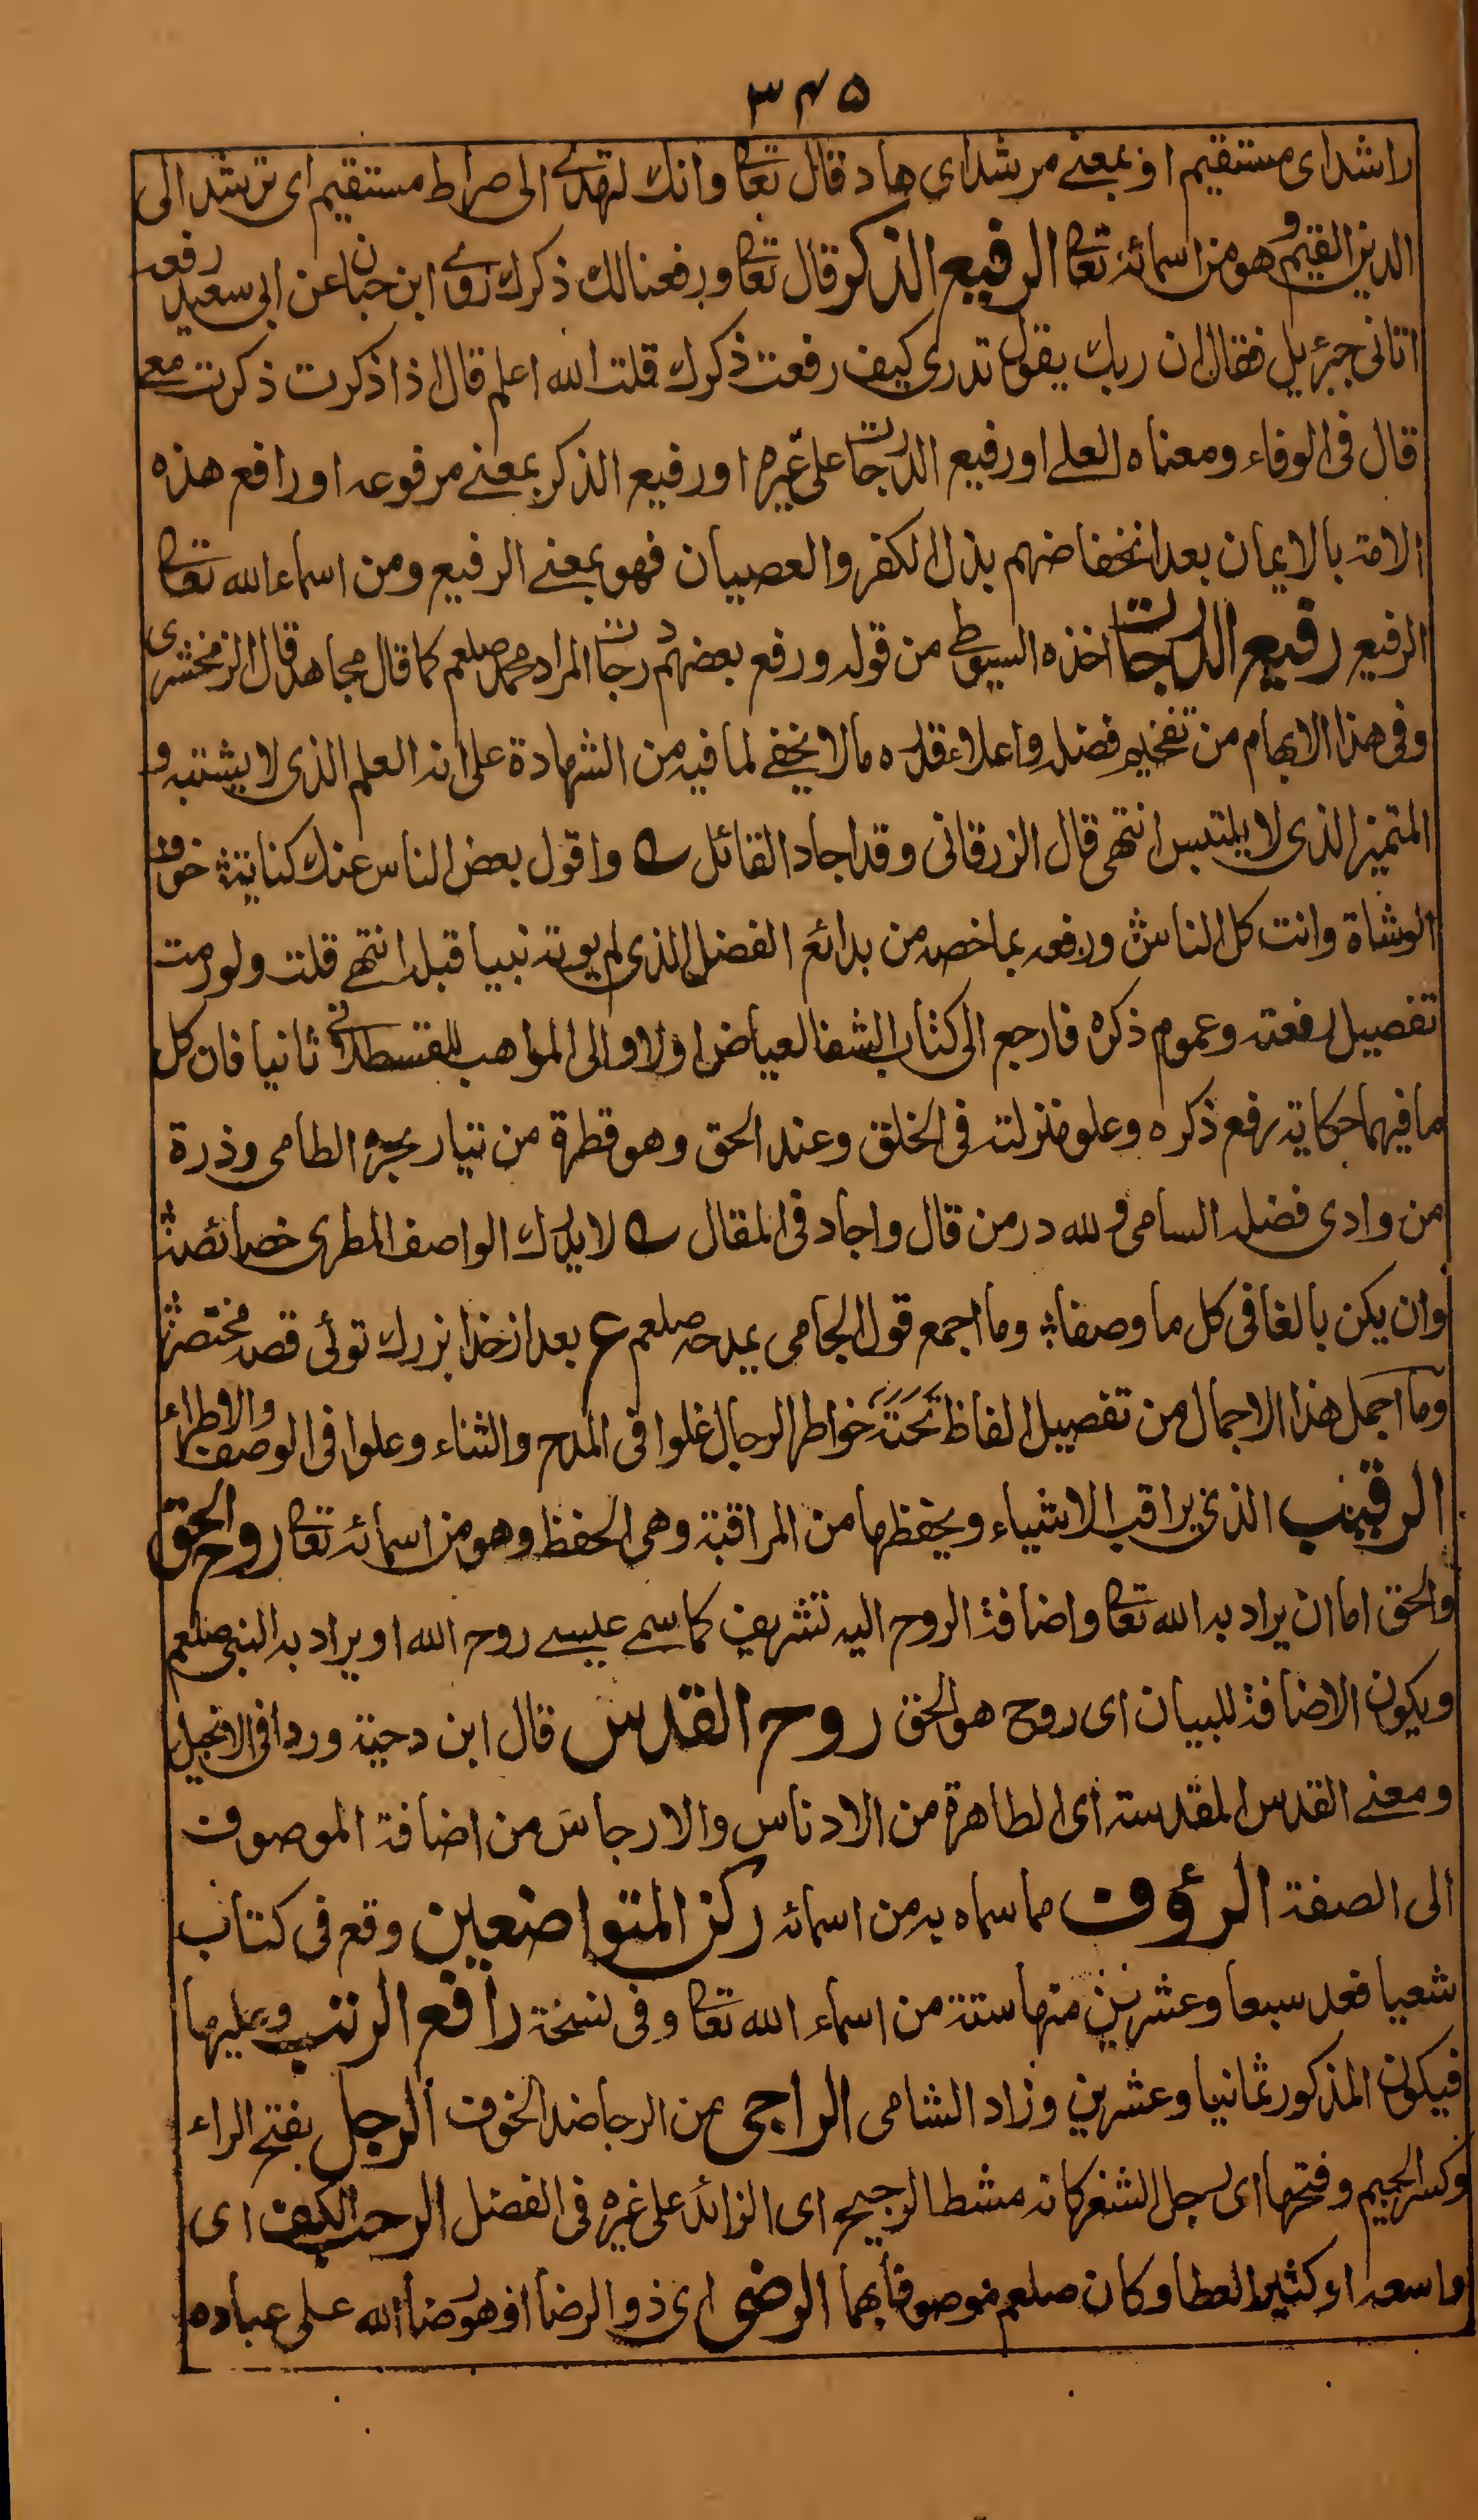 ٣٤٥
راشد ای مستقیم او بمعنے مرشد ای هاد قال تعالى وانك لتهدے الى صراط مستقيم ای ترشد الى
الدين القيم و هو من اسمائه تعالى الرفيع الذكر قال تعالى ورفعنا لك ذكرك روے ابن حبان عن ابی سعيد رفعه
اتانی جبرئيل فقال ان ربك يقول تدری كيف رفعت ذكرك قلت الله اعلم قال اذا ذكرت ذكرت معے
قال فی الوفاء ومعناه العلے او رفيع الدرجات على غيره او رفيع الذكر بمعنے مرفوعه او رافع هذه
الامة بالايمان بعد انخفاضهم بذل الكفر والعصيان فهو بمعنے الرفيع ومن اسماء الله تعالى
الرفيع رفيع الدرجات اخذه السيوطی من قوله ورفع بعضهم درجات المراد محمد صلعم كما قال مجاهد قال الزمخشری
وفی هذا الابهام من تفخيم فضله واعلاء قدره مالا يخفے لما فيه من الشهادة على انه العلم الذی لا يشتبه و
المتميز الذی لا يلتبس انتهى قال الزرقانی وقد اجاد القائل ؎ واقول بعض الناس عنك كناية خوف
الوشاة وانت كل الناس ورفعه بما خصه من بدائع الفضل الذی لم يوته نبيا قبله انتهے قلت ولو رمت
تفصيل رفعته وعموم ذكره فارجع الى كتاب الشفا لعياض اولا والى المواهب للقسطلانے ثانيا فان كل
ما فيهما حكاية رفع ذكره وعلو منزلته فی الخلق وعند الحق وهو قطرة من تيار بحره الطامی وذرة
من وادی فضله السامی و لله در من قال واجاد فی المقال ؎ لا يدرك الواصف المطری خصائصه
وان يكن بالغا فی كل ما وصفا؞ وما اجمع قول الجامی يمدحه صلعم ع بعد از خدا بزرك توئی قصه مختصر
وما اجمل هذا الاجمال من تفصيل الفاظ نحتته خواطر الرجال غلوا فی المدح والثناء وعلوا فی الوصف والاطراء
الرقيب الذی يراقب الاشياء ويحفظها من المراقبة وهی الحفظ وهو من اسمائه تعالى روح الحق
والحق اما ان يراد به الله تعالى واضافة الروح اليه تشريف كما سمے عيسے روح الله او يراد به النبی صلعم
ويكون الاضافة للبيان ای روح هو الحق روح القدس قال ابن دحية ورد فی الانجيل
ومعنے القدس المقدسة ای الطاهرة من الادناس والارجاس من اضافة الموصوف
الى الصفة الرؤف مما سماه به من اسمائه ركن المتواضعين وقع فی كتاب
شعيا فعد سبعا وعشرين منها ستة من اسماء الله تعالى وفی نسخة رافع الرتب وعليها
فيكون المذكور ثمانيا وعشرين وزاد الشامی الراجی من الرجا ضد الخوف الرجل بفتح الراء
وكسر الجيم وفتحها ای رجل الشعر كانه مشط الرجيح ای الزائد على غيره فی الفضل الرحب الكف ای
واسعه او كثير العطا وكان صلعم موصوفا بهما الرضی ای ذو الرضا او هو رضا الله على عباده